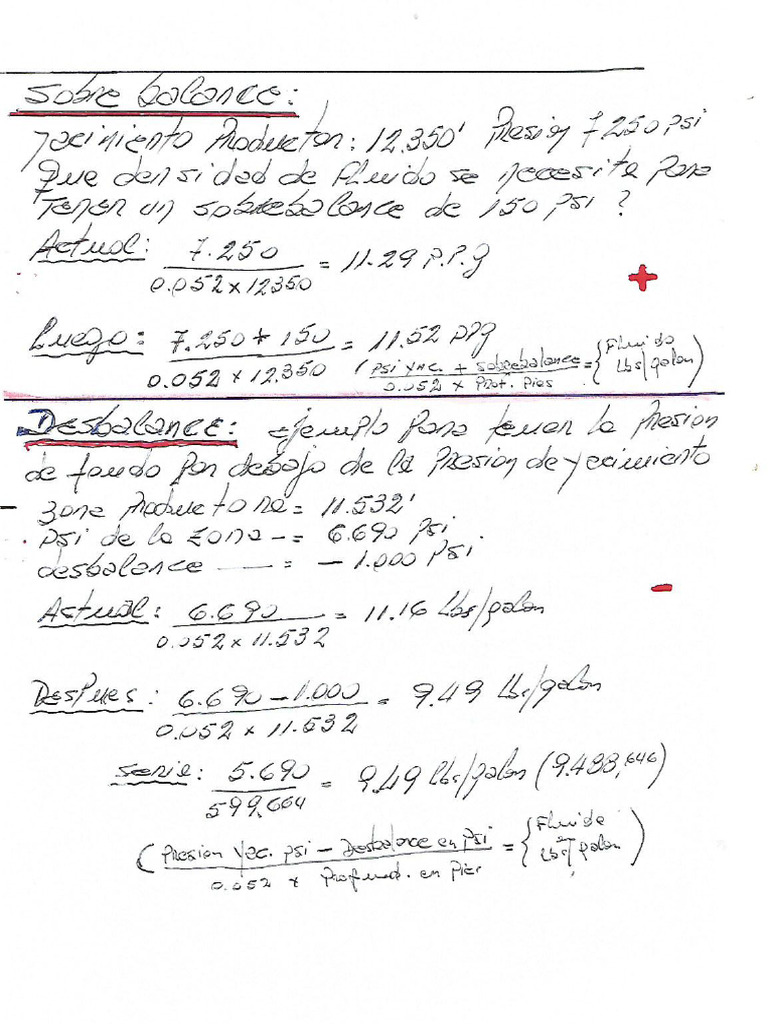 Sobre balance:
Yacimiento Productor: 12.350' Presion 7250 psi
Que densidad de Fluido se necesita para
Tener un sobrebalance de 150 psi?
Actual: 7.250 / 0.052 x 12350 = 11.29 P.P.g
+
Luego: 7.250 + 150 / 0.052 x 12.350 = 11.52 ppg
(psi yac. + sobrebalance / 0.052 x Prof. Pies = { Fluido Lbs/galon )
Desbalance: ejemplo para tener la Presion
de fondo por debajo de la Presion de yacimiento
zona Productora = 11.532'
psi de la zona -= 6.690 psi.
desbalance — = - 1.000 Psi.
-
Actual: 6.690 / 0.052 x 11.532 = 11.16 Lbs/galon
Despues: 6.690 - 1.000 / 0.052 x 11.532 = 9.49 Lbs/galon
serie: 5.690 / 599,664 = 9.49 Lbs/galon (9.488,646)
(Presion Yac. psi - Desbalance en psi / 0.052 x Profund. en Pies = { Fluido Lbs/galon )